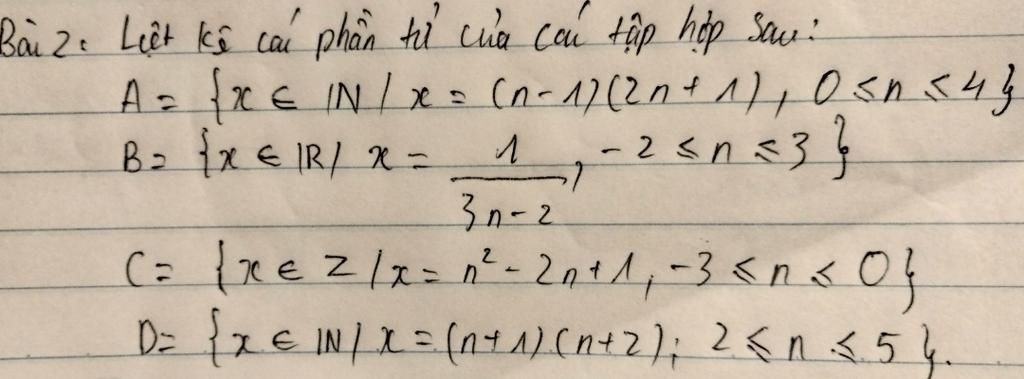 Bài 2: Liệt kê các phần tử của các tập hợp sau:
A = {x ∈ ℕ / x = (n-1)(2n+1), 0 ≤ n ≤ 4}
B = {x ∈ ℝ / x = 1/(3n-2), -2 ≤ n ≤ 3}
C = {x ∈ Z / x = n² - 2n + 1, -3 ≤ n ≤ 0}
D = {x ∈ ℕ / x = (n+1)(n+2); 2 ≤ n ≤ 5}.